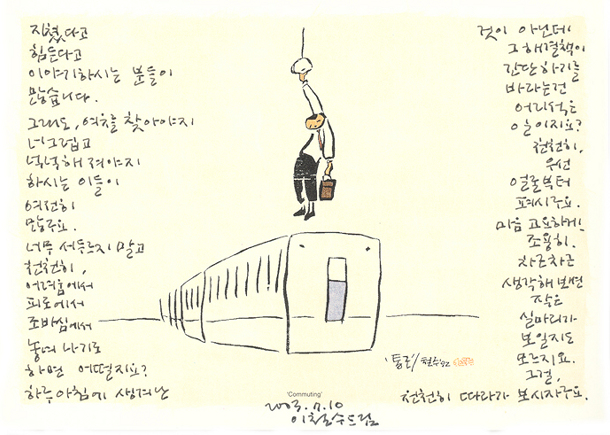 지쳤다고
힘든다고
이야기하시는 분들이
많습니다.
그래도, 여유를 찾아야지
너그럽고
넉넉해 져야지
하시는 이들이
여전히
많구요.
너무 서두르지 말고
천천히,
어려움에서
피로에서
조바심에서
놓여 나기로
하면 어떨지요?
하루아침에 생겨난
것이 아닌데
그 해결책이
간단하기를
바라는건
어리석은
일이지요?
천천히,
우선
얼굴부터
펴시구요.
마음 고요하게!
조용히.
차근차근
생각해 보면
작은
실마리가
보일지도
모르지요.
그걸,
천천히 따라가 보시자구요.
'통근'/ 철수'92
'Commuting'
2003. 7. 10
이철수드림